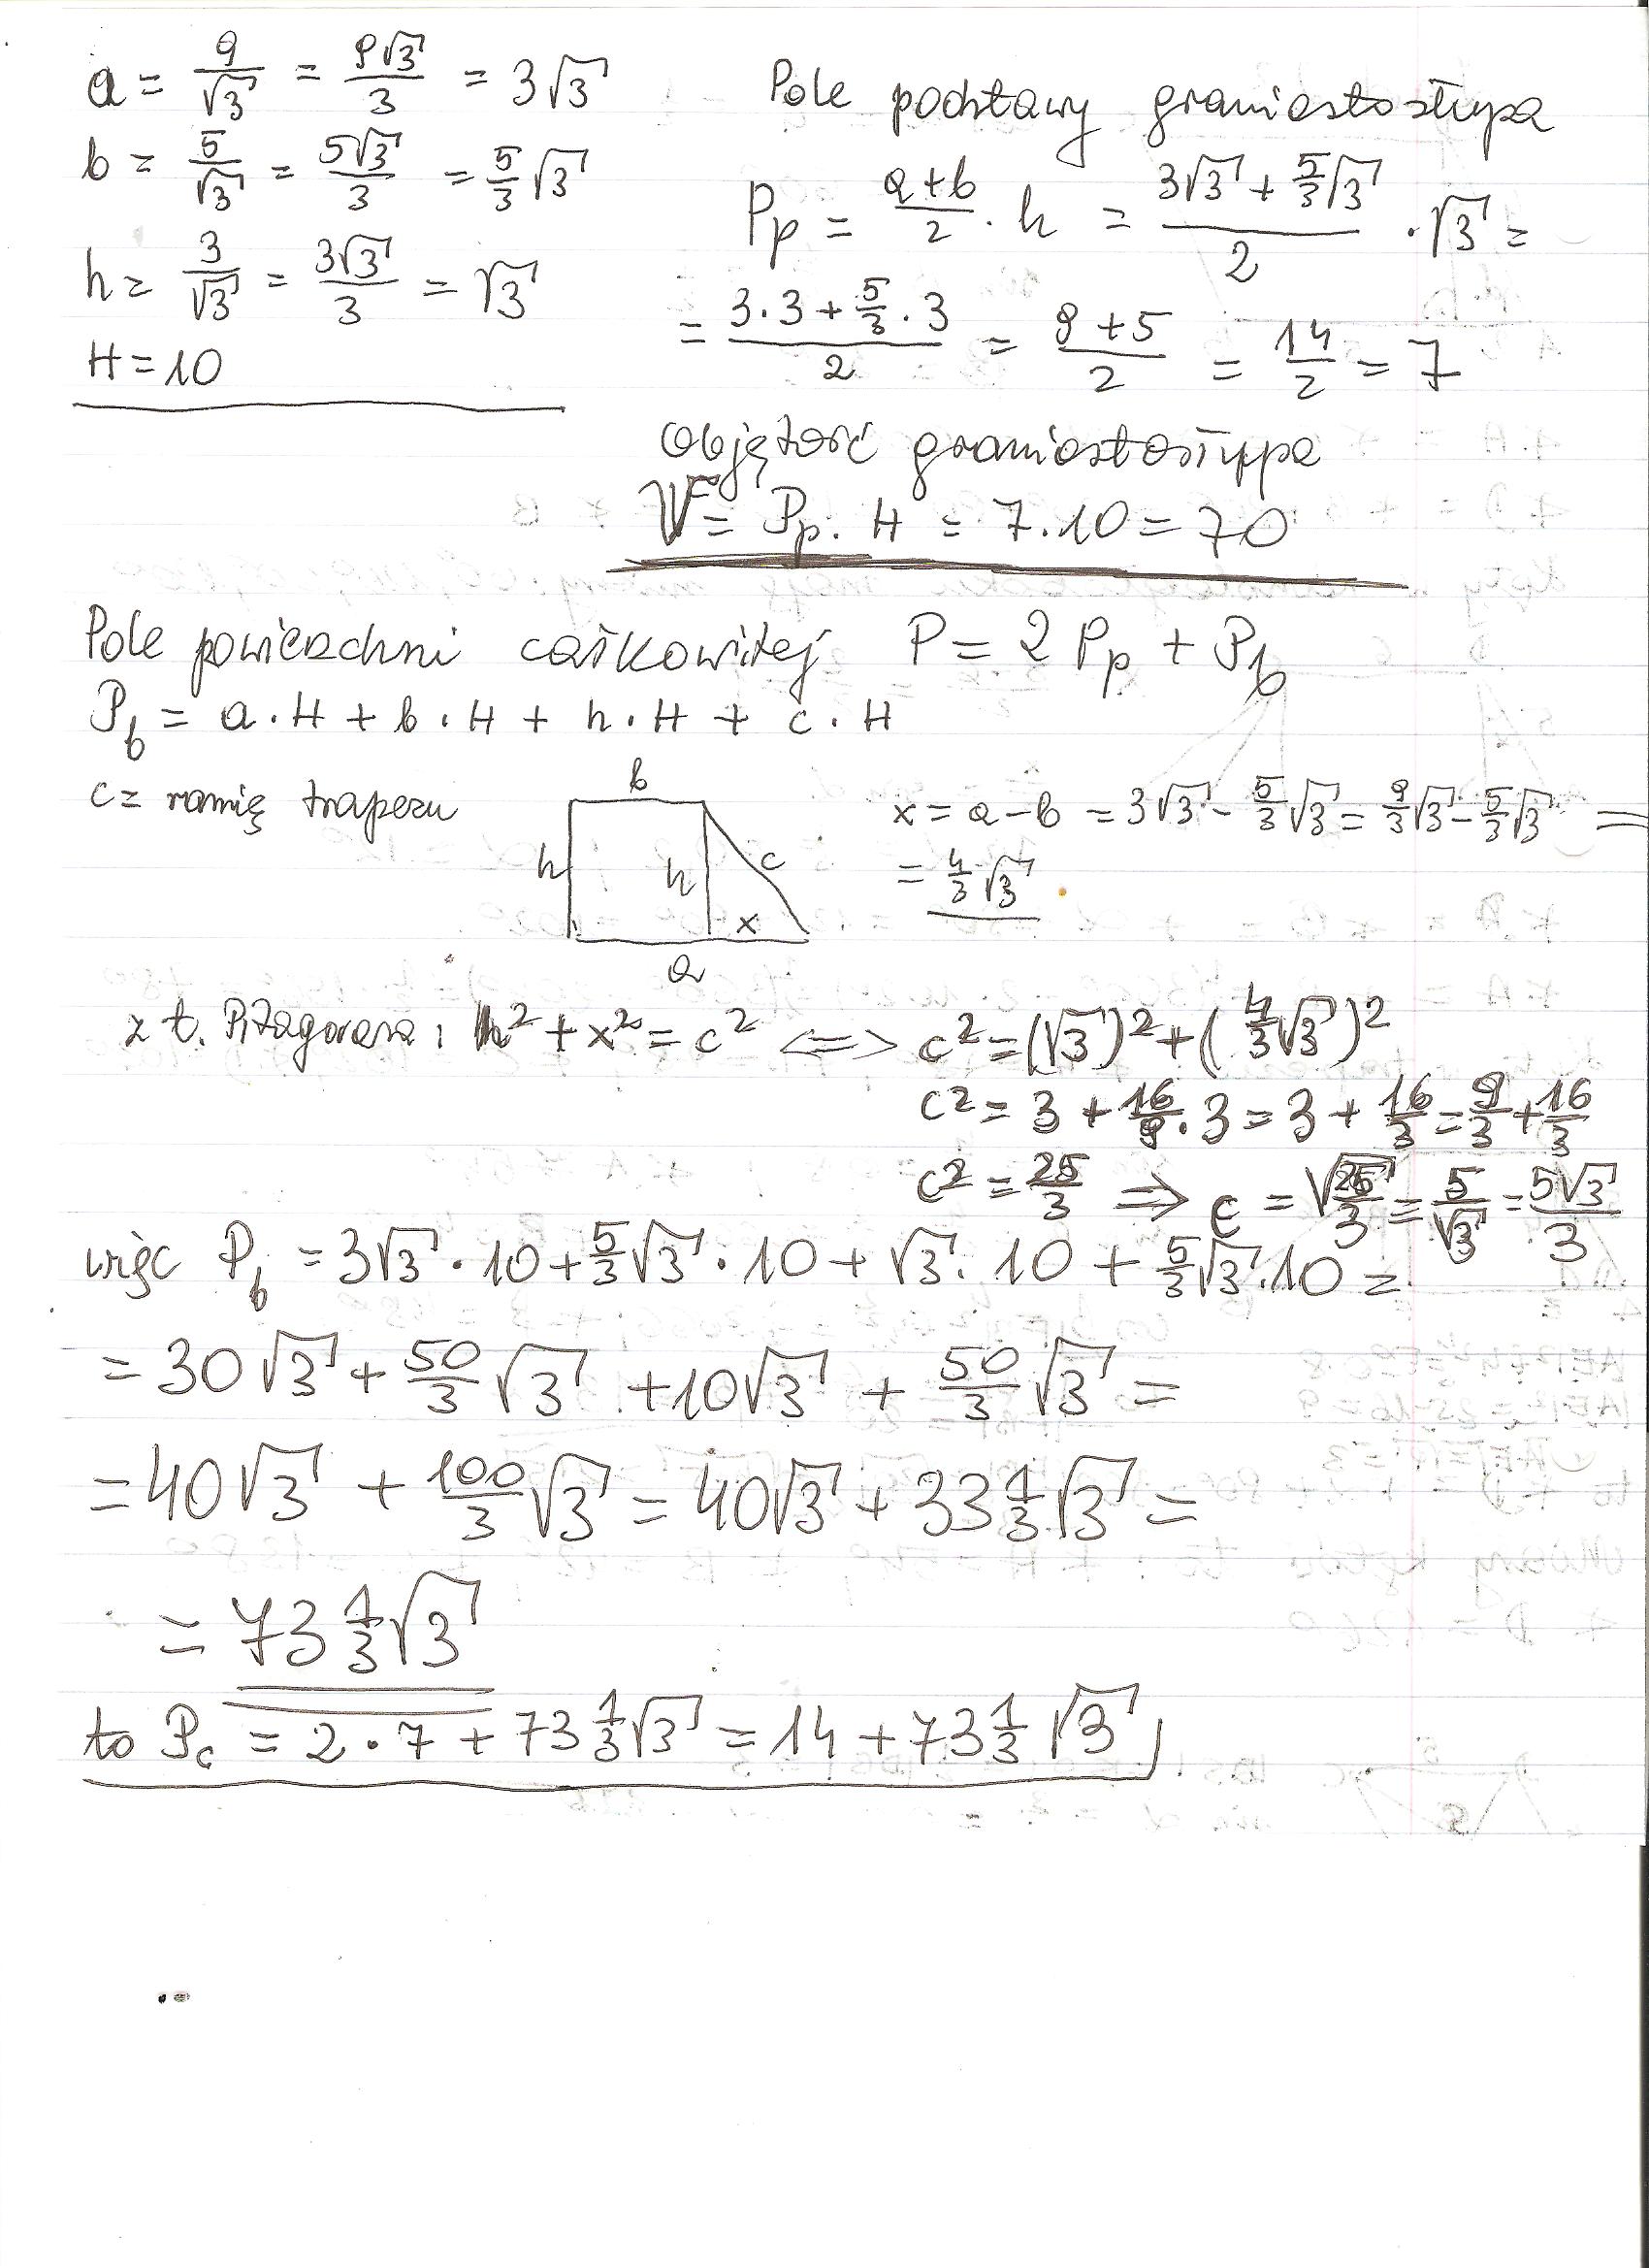 a = 9/√3 = 9√3/3 = 3√3
b = 5/√3 = 5√3/3 = 5/3 √3
h = 3/√3 = 3√3/3 = √3
H = 10
Pole podstawy graniastosłupa
Pp = (a+b)/2 · h = (3√3 + 5/3√3)/2 · √3 =
= (3·3 + 5/3·3)/2 = (9+5)/2 = 14/2 = 7
Objętość graniastosłupa
V = Pp · H = 7·10 = 70
Pole powierzchni całkowitej P = 2 Pp + Pb
Pb = a·H + b·H + h·H + c·H
c = ramię trapezu
b
h
h
c
x
a
x = a-b = 3√3 - 5/3√3 = 9/3√3 - 5/3√3 =
= 4/3√3
z t. Pitagorasa: h² + x² = c² <=> c² = (√3)² + (4/3√3)²
c² = 3 + 16/9·3 = 3 + 16/3 = 9/3 + 16/3
c² = 25/3 => c = √(25/3) = 5/√3 = 5√3/3
więc Pb = 3√3·10 + 5/3√3·10 + √3·10 + 5/3√3·10 =
= 30√3 + 50/3√3 + 10√3 + 50/3√3 =
= 40√3 + 100/3√3 = 40√3 + 33 1/3√3 =
= 73 1/3√3
to Pc = 2·7 + 73 1/3√3 = 14 + 73 1/3√3